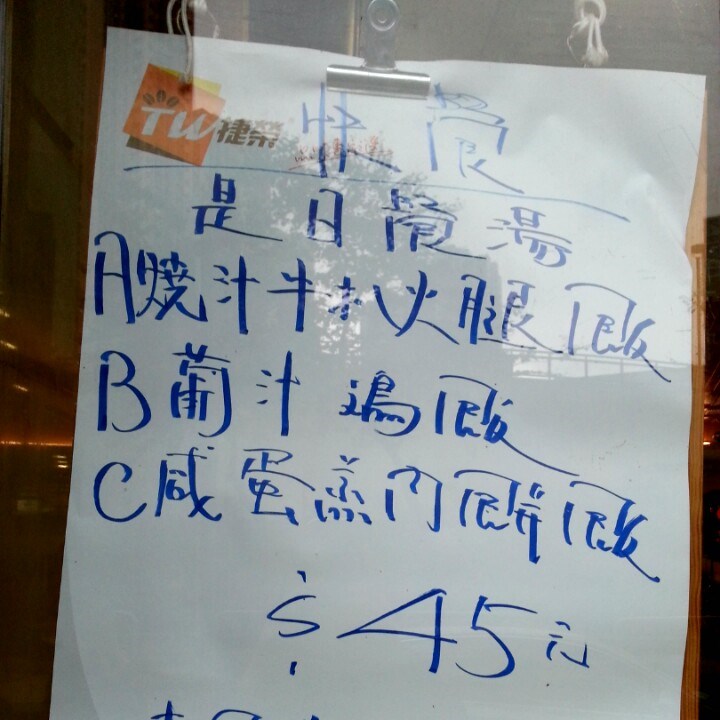 TW捷榮
快餐
是日餐湯
A燒汁牛扒火腿飯
B葡汁鸡飯
C咸蛋蒸肉餅飯
$45元